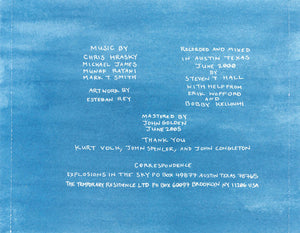 MUSIC BY
CHRIS HRASKY
MICHAEL JAMES
MUNAF RAYANI
MARK T. SMITH
ARTWORK BY
ESTEBAN REY
RECORDED AND MIXED
IN AUSTIN TEXAS
JUNE 2000
BY
STEVEN T HALL
WITH HELP FROM
ERIK WOFFORD
AND
BOBBY KELIUHHI
MASTERED BY
JOHN GOLDEN
JUNE 2005
THANK YOU
KURT VOLK, JOHN SPENCER, AND JOHN CONGLETON
CORRESPONDENCE
EXPLOSIONS IN THE SKY PO BOX 49877 AUSTIN TEXAS 78765
THE TEMPORARY RESIDENCE LTD PO BOX 60097 BROOKLYN NY 11206 USA